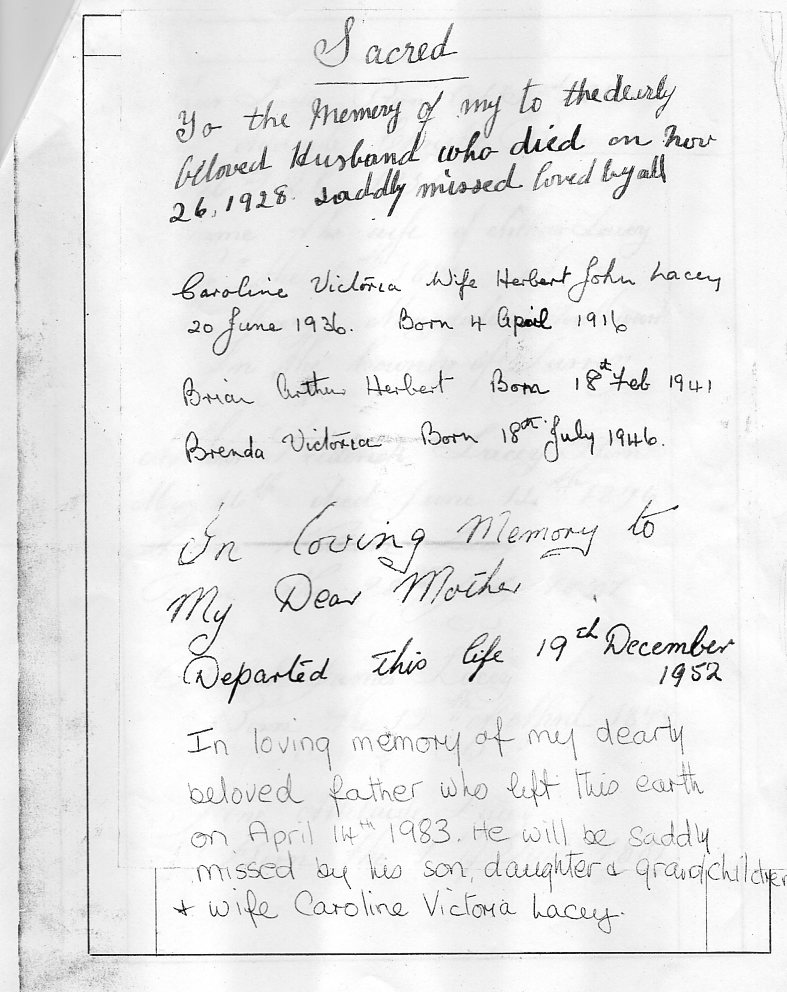 Sacred
To the Memory of my to the dearly
beloved Husband who died on Nov
26, 1928. saddly missed loved by all
Caroline Victoria Wife Herbert John Lacey
20 June 1936. Born 4 April 1916
Brian Arthur Herbert Born 18th Feb 1941
Brenda Victoria Born 18th July 1946.
In Loving Memory to
My Dear Mother
Departed this life 19th December
1952
In loving memory of my dearly
beloved father who left this earth
on April 14th 1983. He will be saddly
missed by his son, daughter & grandchildren
& wife Caroline Victoria Lacey.